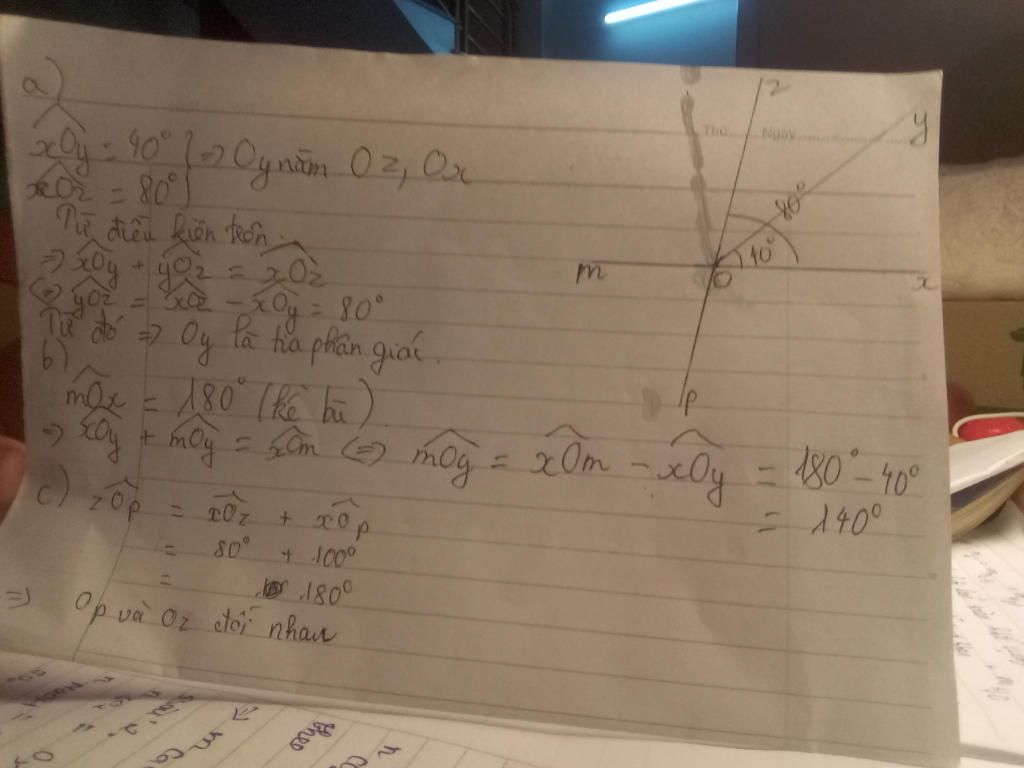 a)
xOy = 40°
xOz = 80° } => Oy nằm Oz, Ox
Từ điều kiện trên.
=> xOy + yOz = xOz
<=> yOz = xOz - xOy = 80°
Từ đó => Oy là tia phân giác.
b)
mOx = 180° (kề bù).
=> xOy + mOy = xOm <=> mOy = xOm - xOy = 180° - 40°
= 140°
c) zOp = xOz + xOp
= 80° + 100°
= 180°
=> Op và Oz đối nhau
Thứ Ngày
z
y
80°
40°
m
O
x
p